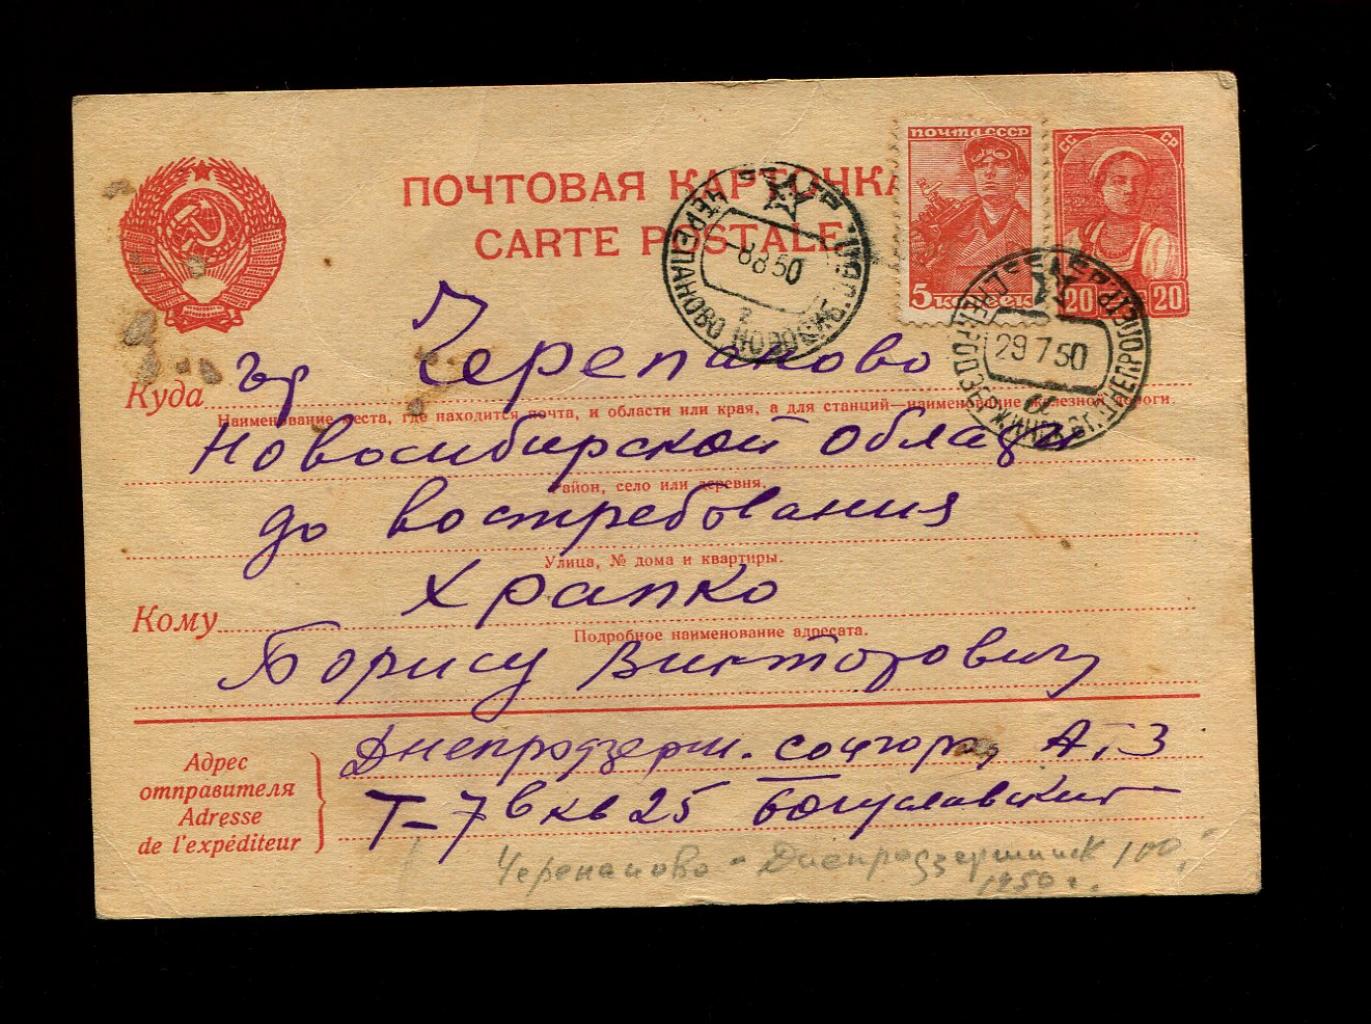 ПОЧТОВАЯ КАРТОЧКА
CARTE POSTALE
ПОЧТА СССР
5 КОПЕЕК
СС СР
20 20
ЧЕРЕПАНОВО НОВОСИБ. ОБЛ.
-8 8 50
29 7 50
Куда гор Черепаново
Наименование места, где находится почта, и области или края, а для станций—наименование железной дороги.
Новосибирской област
Район, село или деревня.
до востребования
Улица, № дома и квартиры.
Кому Храпко
Подробное наименование адресата.
Борису Викторовичу
Адрес
отправителя
Adresse
de l'expéditeur
Днепродзерж. соцгород А, 3
Т-7 в кв 25 Богуславский
Черепаново - Днепродзержинск 100,-
1950 г.